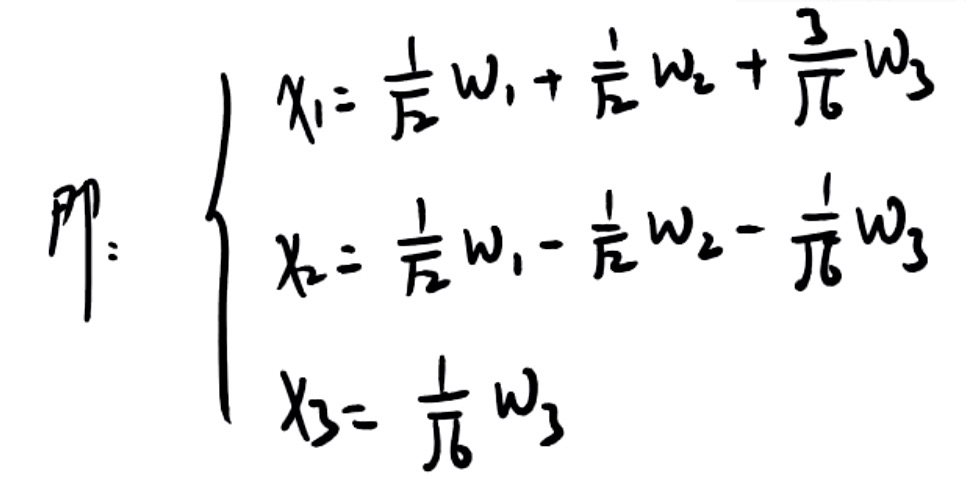 即: { x₁ = 1/√2 w₁ + 1/√2 w₂ + 3/√6 w₃
x₂ = 1/√2 w₁ - 1/√2 w₂ - 1/√6 w₃
x₃ = 1/√6 w₃